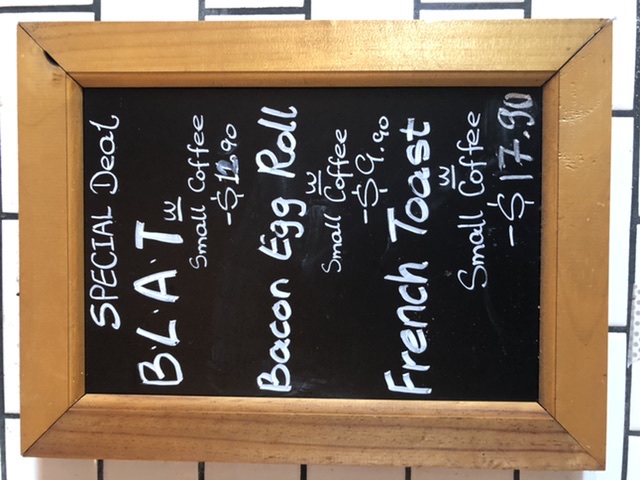 SPECIAL Deal
B.L.A.T
w
Small Coffee
-$12.90
Bacon Egg Roll
w
Small Coffee
-$9.90
French Toast
w
Small Coffee
-$17.90